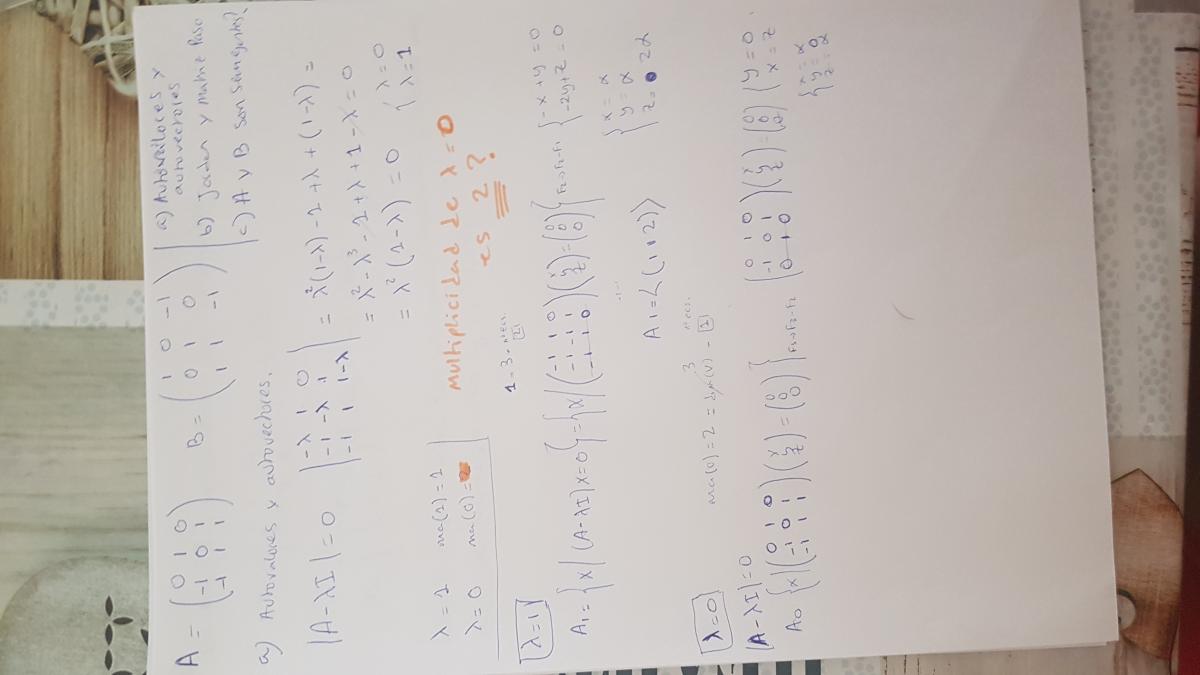 A = ( 0 1 0 / -1 0 1 / -1 1 1 ) B = ( 1 0 -1 / 0 1 0 / 1 1 -1 )
a) Autovalores y autovectores
b) Jordan y matriz Paso
c) A y B son semejantes?
a) Autovalores y autovectores.
|A-λI| = 0 | -λ 1 0 / -1 -λ 1 / -1 1 1-λ | = λ²(1-λ) - 1 + λ + (1-λ) =
= λ² - λ³ - 1 + λ + 1 - λ = 0
= λ² (1-λ) = 0 { λ=0 / λ=1
λ = 1 ma(1) = 1
λ = 0 ma(0) =
Multiplicidad de λ = 0
es 2?
λ=1
1 = 3 - nºecs.
2
A₁ = { x | (A-λI)x=0 } = { x | ( -1 1 0 / -1 -1 1 / -1 1 0 ) ( x / y / z ) = ( 0 / 0 / 0 ) } { -x + y = 0 / -2y + z = 0
F₂→F₂-F₁
{ x = α / y = α / z = 2α
A₁ = ⟨(1 1 2)⟩
λ=0
ma(0) = 2 = 3 - nºecs.
1
|A-λI| = 0
A₀ { x | ( 0 1 0 / -1 0 1 / -1 1 1 ) ( x / y / z ) = ( 0 / 0 / 0 ) } F₃→F₃-F₂ ( 0 1 0 / -1 0 1 / 0 1 0 ) ( x / y / z ) = ( 0 / 0 / 0 ) { y = 0 / x = z
{ x = α / y = 0 / z = α